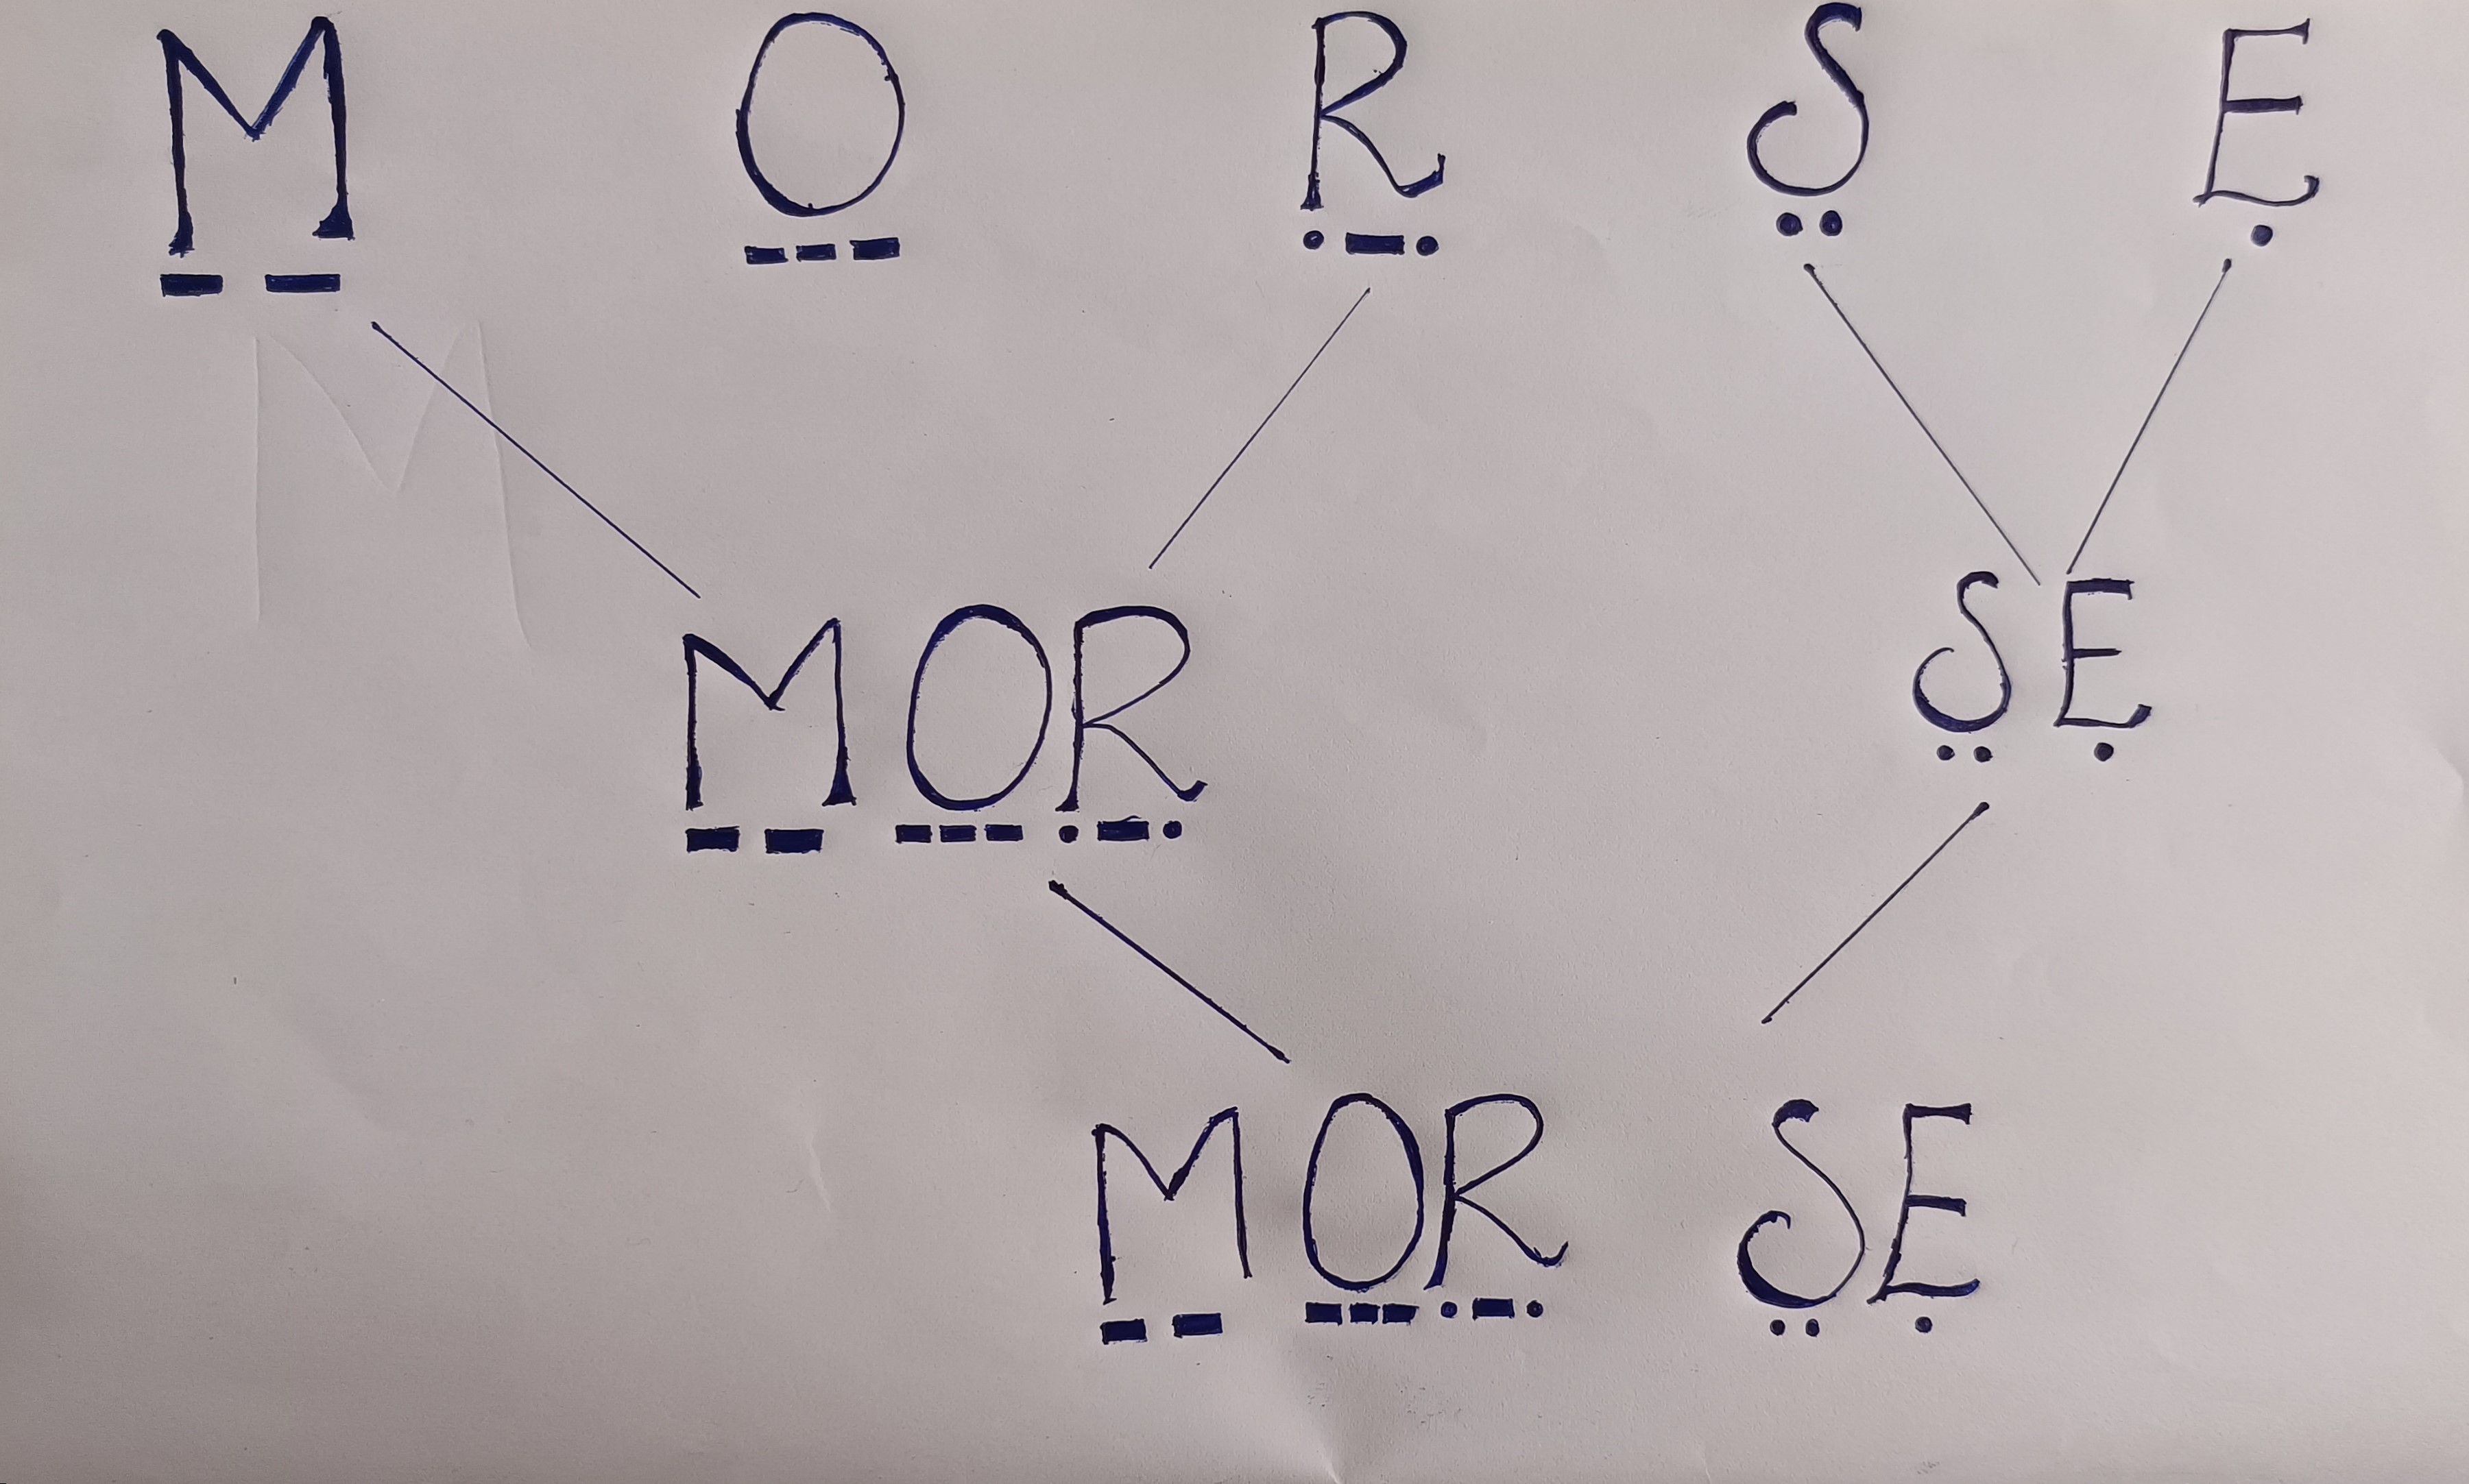 M O R S E
-- --- .-. .. .
MOR SE
-- --- .-. .. .
MOR SE
-- --- .-. .. .